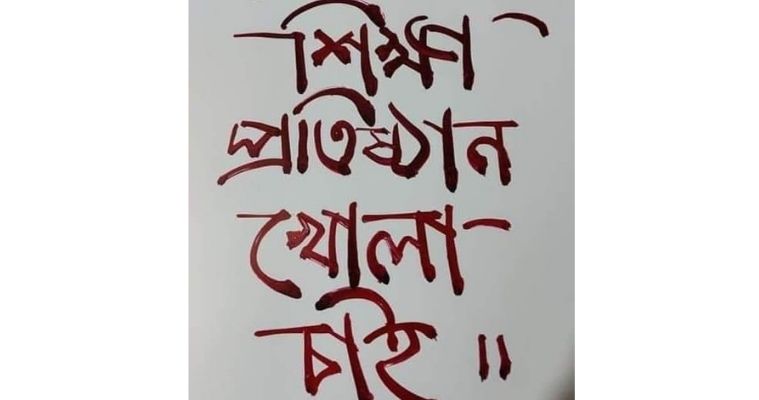 শিক্ষা
প্রতিষ্ঠান
খোলা
চাই॥